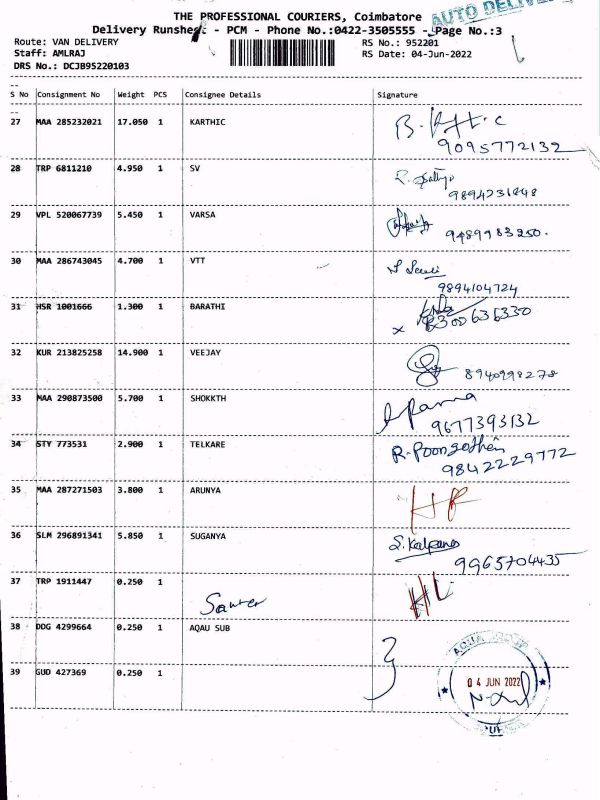 THE PROFESSIONAL COURIERS, Coimbatore
AUTO DELIVERY
Delivery Runsheet - PCM - Phone No.:0422-3505555 - Page No.:3
Route: VAN DELIVERY RS No.: 952201
Staff: AMLRAJ RS Date: 04-Jun-2022
DRS No.: DCJB95220103
S No Consignment No Weight PCS Consignee Details Signature
27 MAA 285232021 17.050 1 KARTHIC
9095772132
28 TRP 6811210 4.950 1 SV
29 VPL 520067739 5.450 1 VARSA
30 MAA 286743045 4.700 1 VTT
9894104724
31 HSR 1001666 1.300 1 BARATHI
x 6300636330
32 KUR 213825258 14.900 1 VEEJAY
8940998278
33 MAA 290873500 5.700 1 SHOKKTH
9677393132
34 STY 773531 2.900 1 TELKARE R. Poongothai
9842229772
35 MAA 287271503 3.800 1 ARUNYA
36 SLM 296891341 5.850 1 SUGANYA S. Kalpana
9965704435
37 TRP 1911447 0.250 1
38 DDG 4299664 0.250 1 AQAU SUB
39 GUD 427369 0.250 1
04 JUN 2022